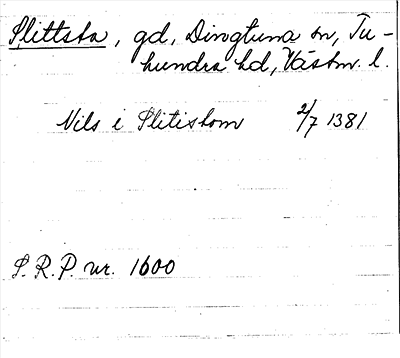 Slittsta, gd, Dingtuna sn, Tu-
hundra hd, Västm. l.
Nils i Slitistom 2/7 1381
S.R.P. nr. 1600